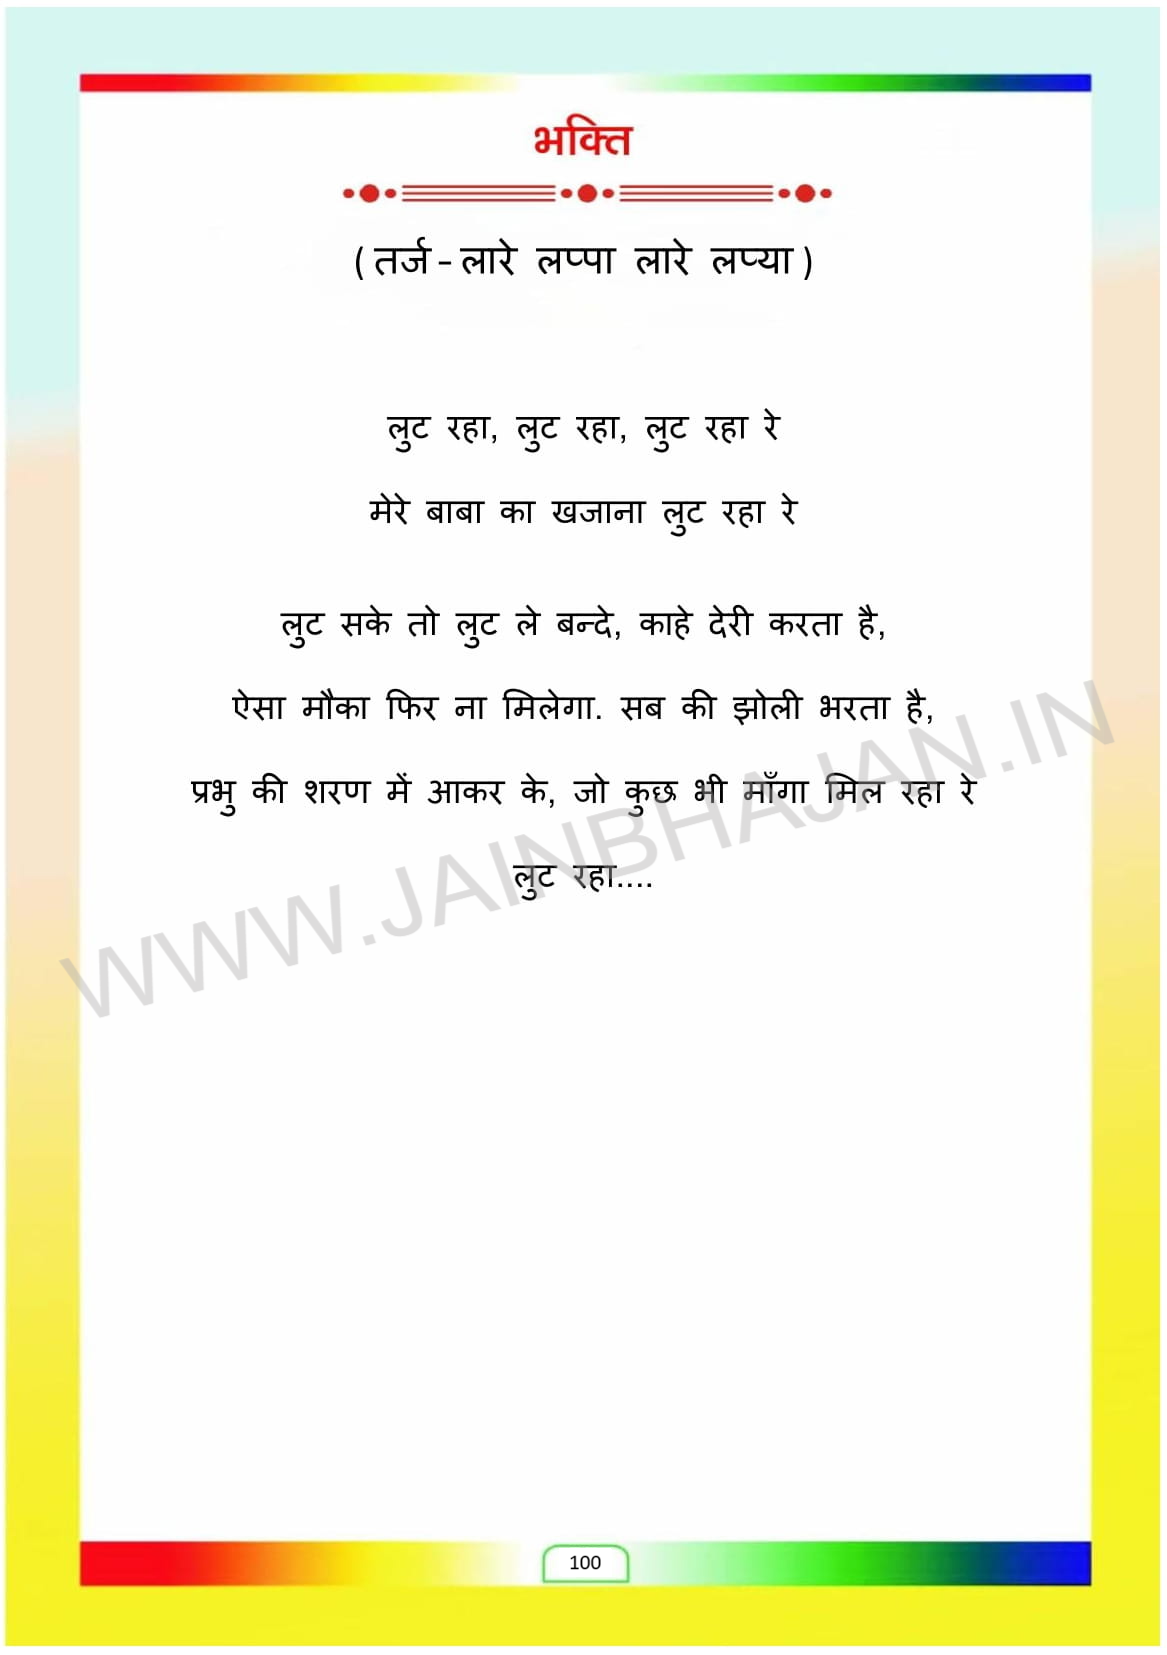 भक्ति
( तर्ज – लारे लप्पा लारे लप्या )
लुट रहा, लुट रहा, लुट रहा रे
मेरे बाबा का खजाना लुट रहा रे
लुट सके तो लुट ले बन्दे, काहे देरी करता है,
ऐसा मौका फिर ना मिलेगा. सब की झोली भरता है,
प्रभु की शरण में आकर के, जो कुछ भी माँगा मिल रहा रे
लुट रहा....
WWW.JAINBHAJAN.IN
100